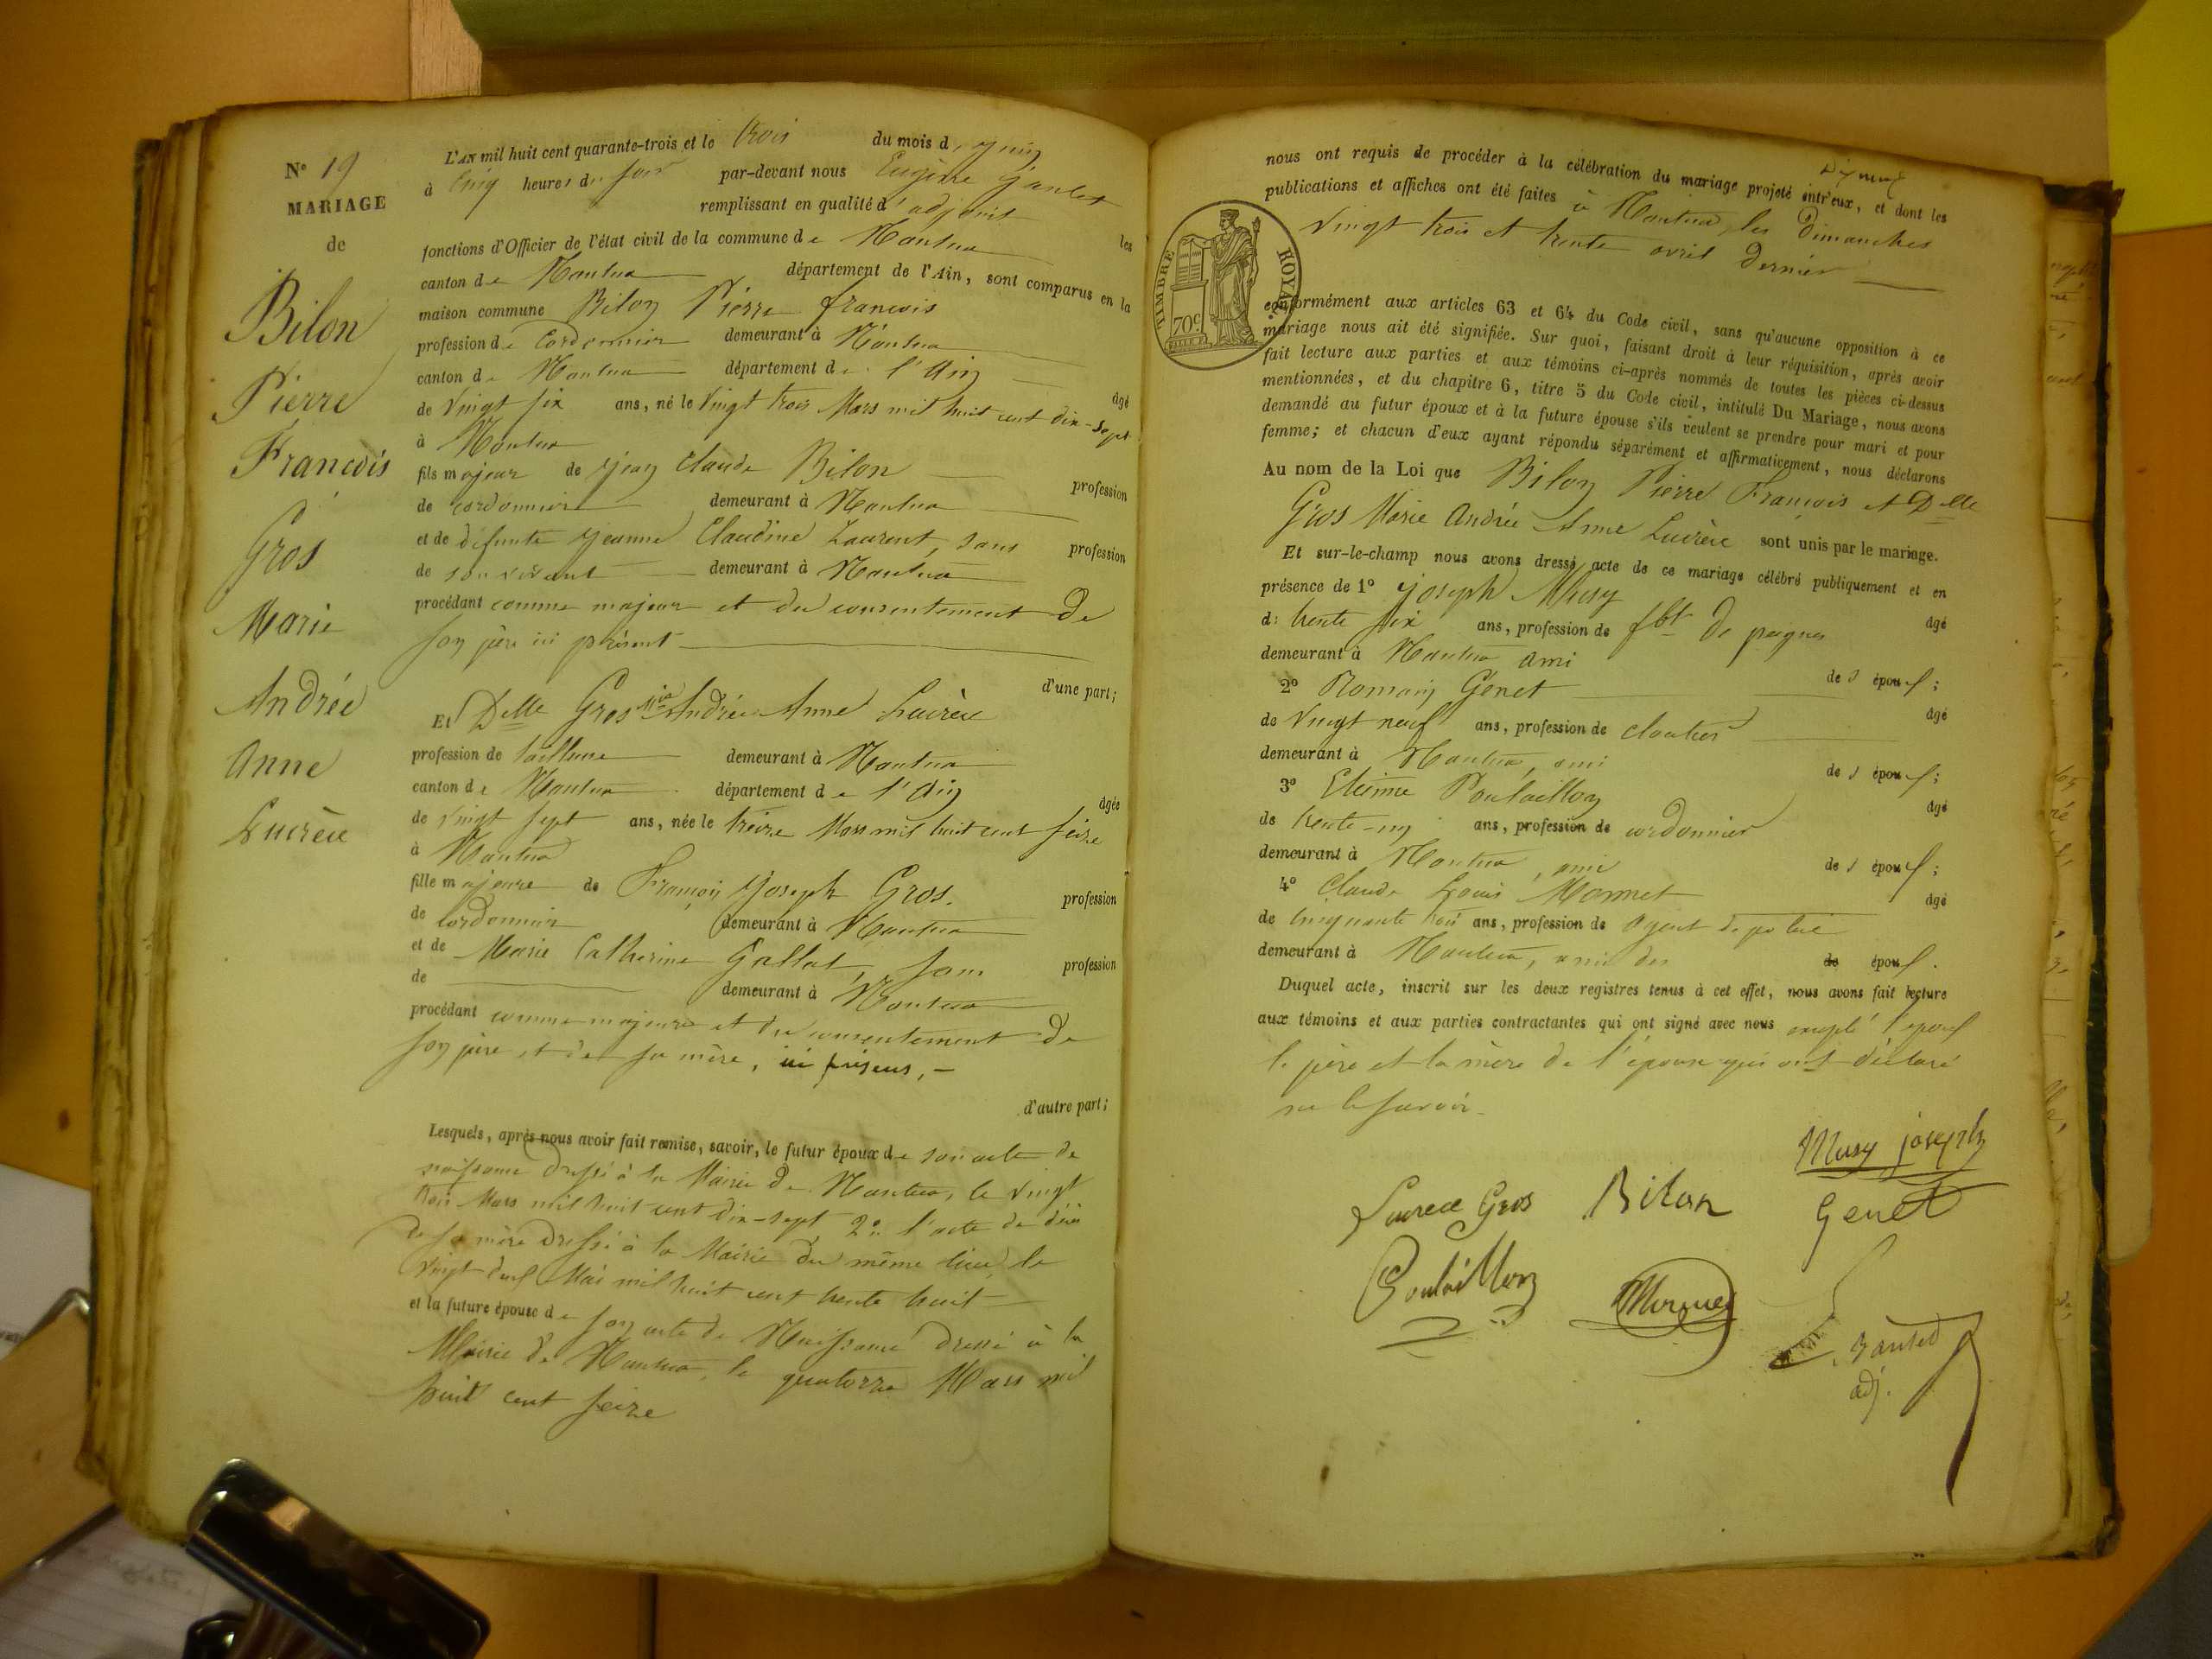 N° 19
MARIAGE
de
Bilon
Pierre
François
Gros
Marie
Andrée
Anne
Lucrèce
L'AN mil huit cent quarante-trois et le trois du mois de juin
à cinq heures du soir par-devant nous Eugène
remplissant en qualité d'adjoint les
fonctions d'Officier de l'état civil de la commune de Nantua
canton de Nantua département de l'Ain, sont comparus en la
maison commune Bilon Pierre francois
profession de Cordonnier demeurant à Nantua
canton de Nantua département de l'Ain âgé
de Vingt six ans, né le Vingt trois Mars mil huit cent dix-sept
à Nantua
fils majeur de jean Claude Bilon profession
de cordonnier demeurant à Nantua
et de défunte jeanne Claudine Laurent, sans profession
de son vivant demeurant à Nantua
procédant comme majeur et du consentement de
son père ici présent
d'une part;
Et Delle Gros Mie Andrée Anne Lucrèce
profession de tailleuse demeurant à Nantua
canton de Nantua département de l'Ain âgée
de vingt sept ans, née le treize Mars mil huit cent seize
à Nantua
fille majeure de François joseph Gros. profession
de Cordonnier demeurant à Nantua
et de Marie Catherine Gallat, sans profession
de demeurant à Nantua
procédant comme majeure et du consentement de
son père et de sa mère, ici présens,
d'autre part;
Lesquels, après nous avoir fait remise, savoir, le futur époux de son acte de
naissance dressé à la Mairie de Nantua, le Vingt
trois Mars mil huit cent dix-sept 2° l'acte de décès
de sa mère dressé à la Mairie du même lieu le
Vingt Mai mil huit cent trente huit
et la future épouse de son acte de Naissance dressé à la
Mairie de Nantua, le quatorze Mars mil
huit cent seize
nous ont requis de procéder à la célébration du mariage projeté entr'eux, et dont les
publications et affiches ont été faites à Nantua, les Dimanches
Vingt trois et trente avril dernier
TIMBRE ROYAL
70c
conformément aux articles 63 et 64 du Code civil, sans qu'aucune opposition à ce
mariage nous ait été signifiée. Sur quoi, faisant droit à leur réquisition, après avoir
fait lecture aux parties et aux témoins ci-après nommés de toutes les pièces ci-dessus
mentionnées, et du chapitre 6, titre 5 du Code civil, intitulé Du Mariage, nous avons
demandé au futur époux et à la future épouse s'ils veulent se prendre pour mari et pour
femme; et chacun d'eux ayant répondu séparément et affirmativement, nous déclarons
Au nom de la Loi que Bilon Pierre François et Delle
Gros Marie Andrée Anne Lucrèce sont unis par le mariage.
Et sur-le-champ nous avons dressé acte de ce mariage célébré publiquement et en
présence de 1° joseph Musy âgé
de trente six ans, profession de fbt de peignes
demeurant à Nantua ami de l'époux;
2° Romain Genet âgé
de Vingt neuf ans, profession de cloutier
demeurant à Nantua, ami de l'époux;
3° Etienne Poulaillon âgé
de trente ans, profession de cordonnier
demeurant à Nantua, ami de l'époux;
4° Claude Louis Monnet âgé
de Cinquante trois ans, profession de agent de police
demeurant à Nantua, ami des de époux.
Duquel acte, inscrit sur les deux registres tenus à cet effet, nous avons fait lecture
aux témoins et aux parties contractantes qui ont signé avec nous excepté
le père et la mère de l'épouse qui ont déclaré
ne le savoir.
Musy joseph
Lucrece Gros Bilon Genet
Poulaillon
adj.